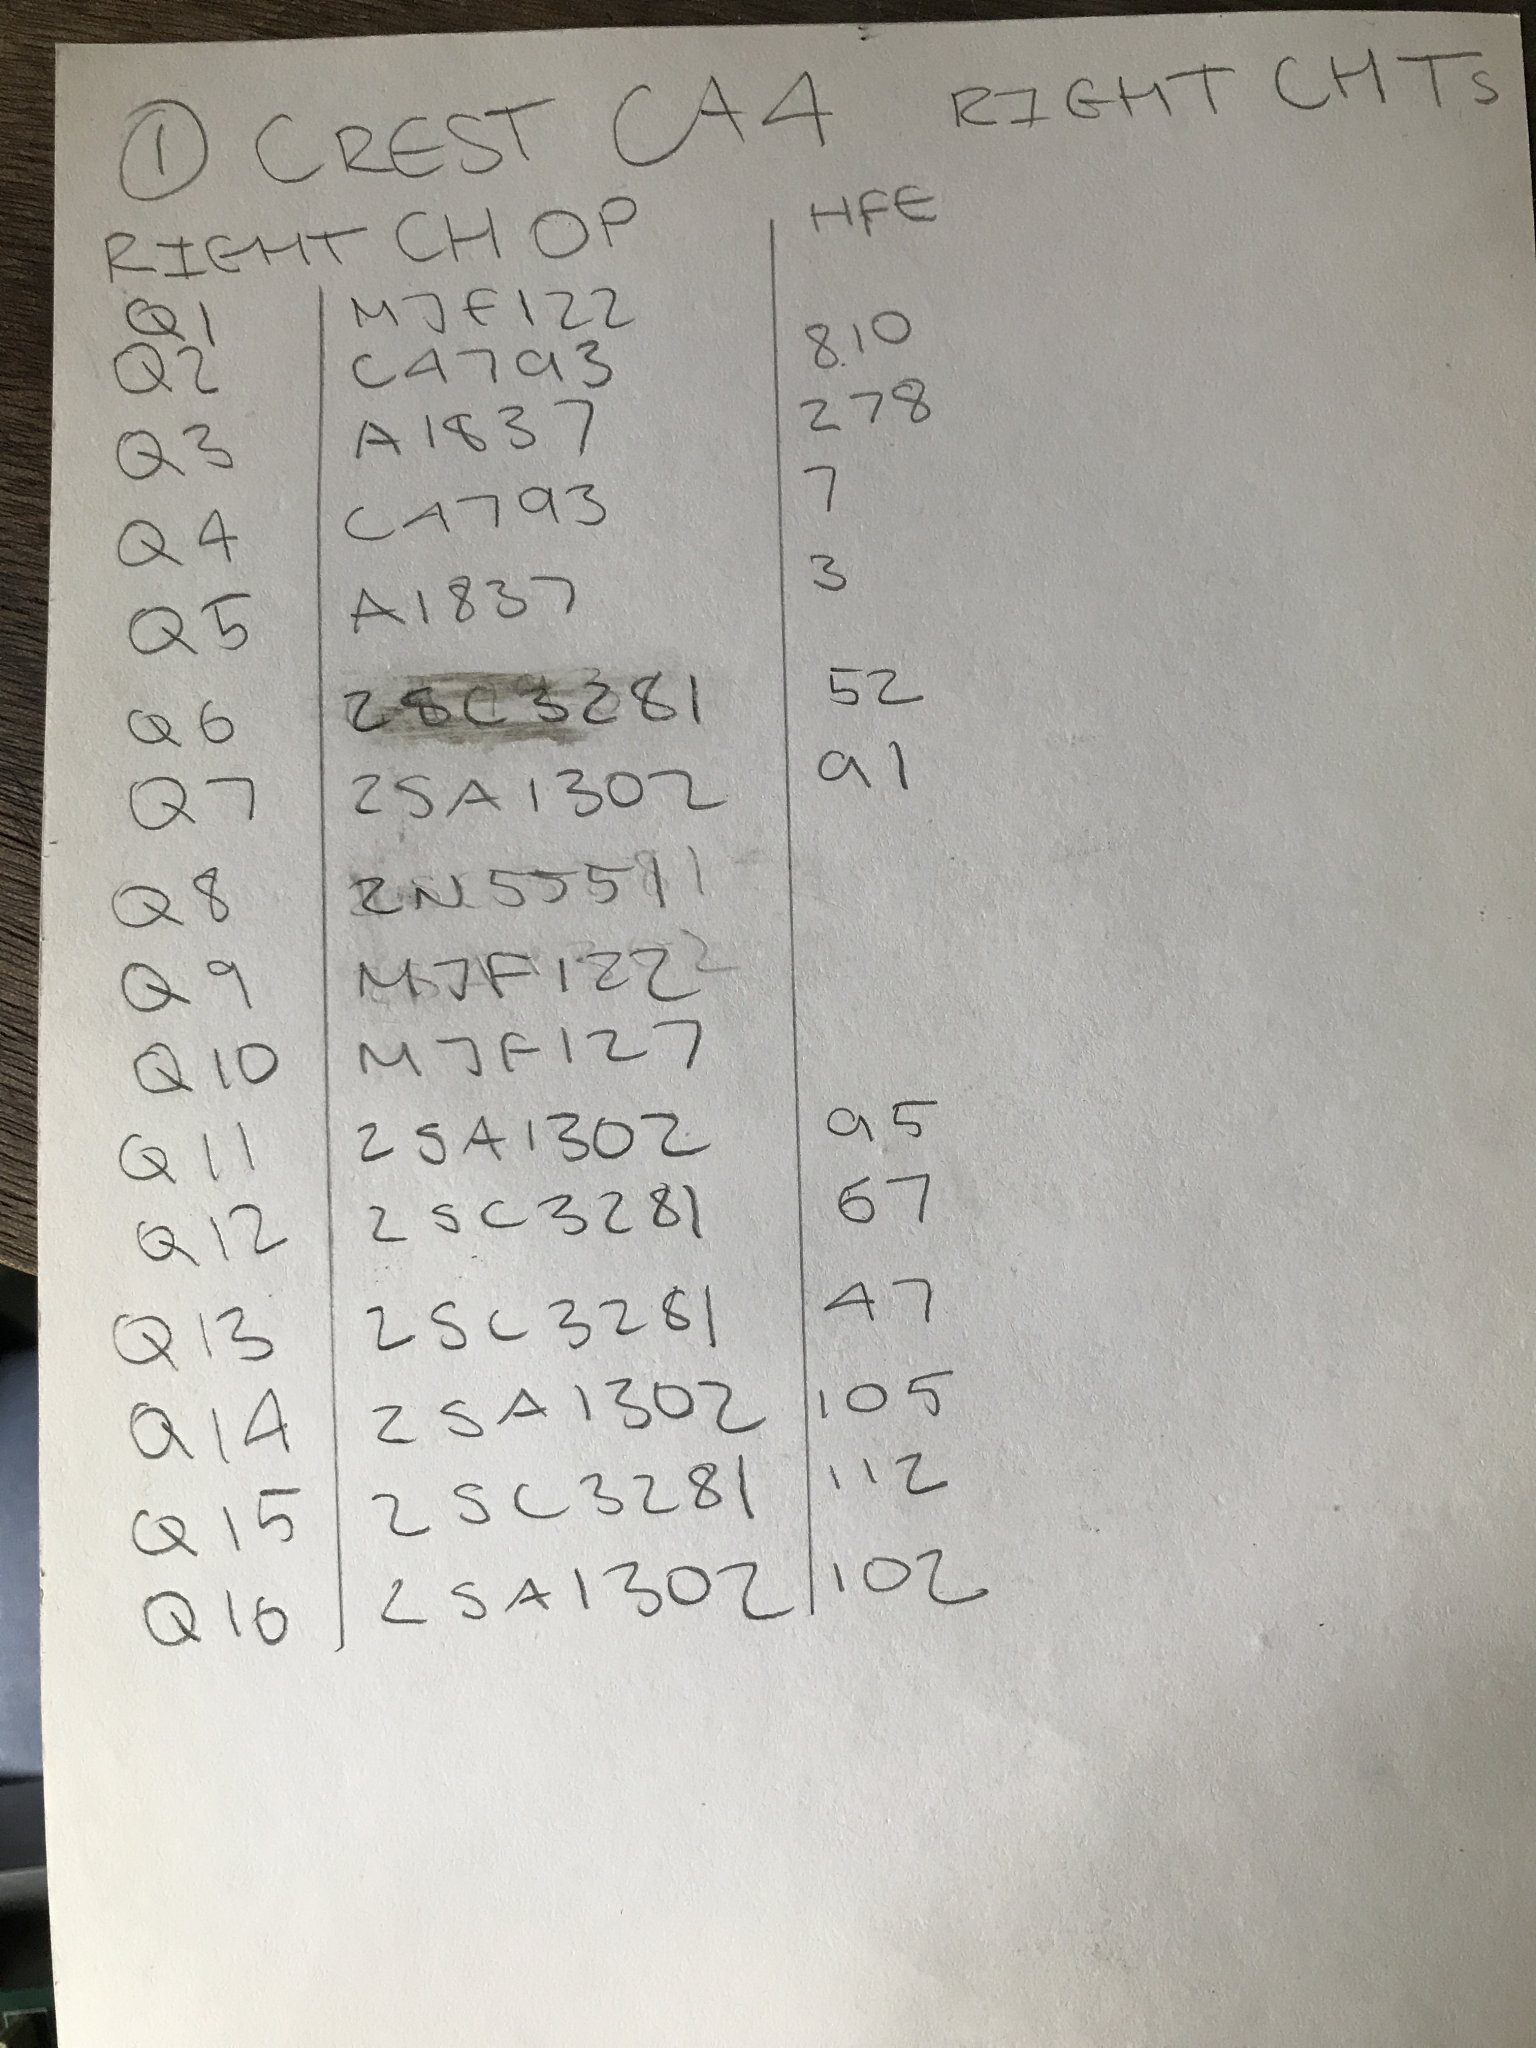 ① CREST CA4 RIGHT CH Ts
RIGHT CH OP HFE
Q1 MJF122
Q2 C4793 810
Q3 A1837 278
Q4 C4793 7
Q5 A1837 3
Q6 2SC3281 52
Q7 2SA1302 91
Q8
Q9 MJF122
Q10 MJF127
Q11 2SA1302 95
Q12 2SC3281 67
Q13 2SC3281 47
Q14 2SA1302 105
Q15 2SC3281 112
Q16 2SA1302 102